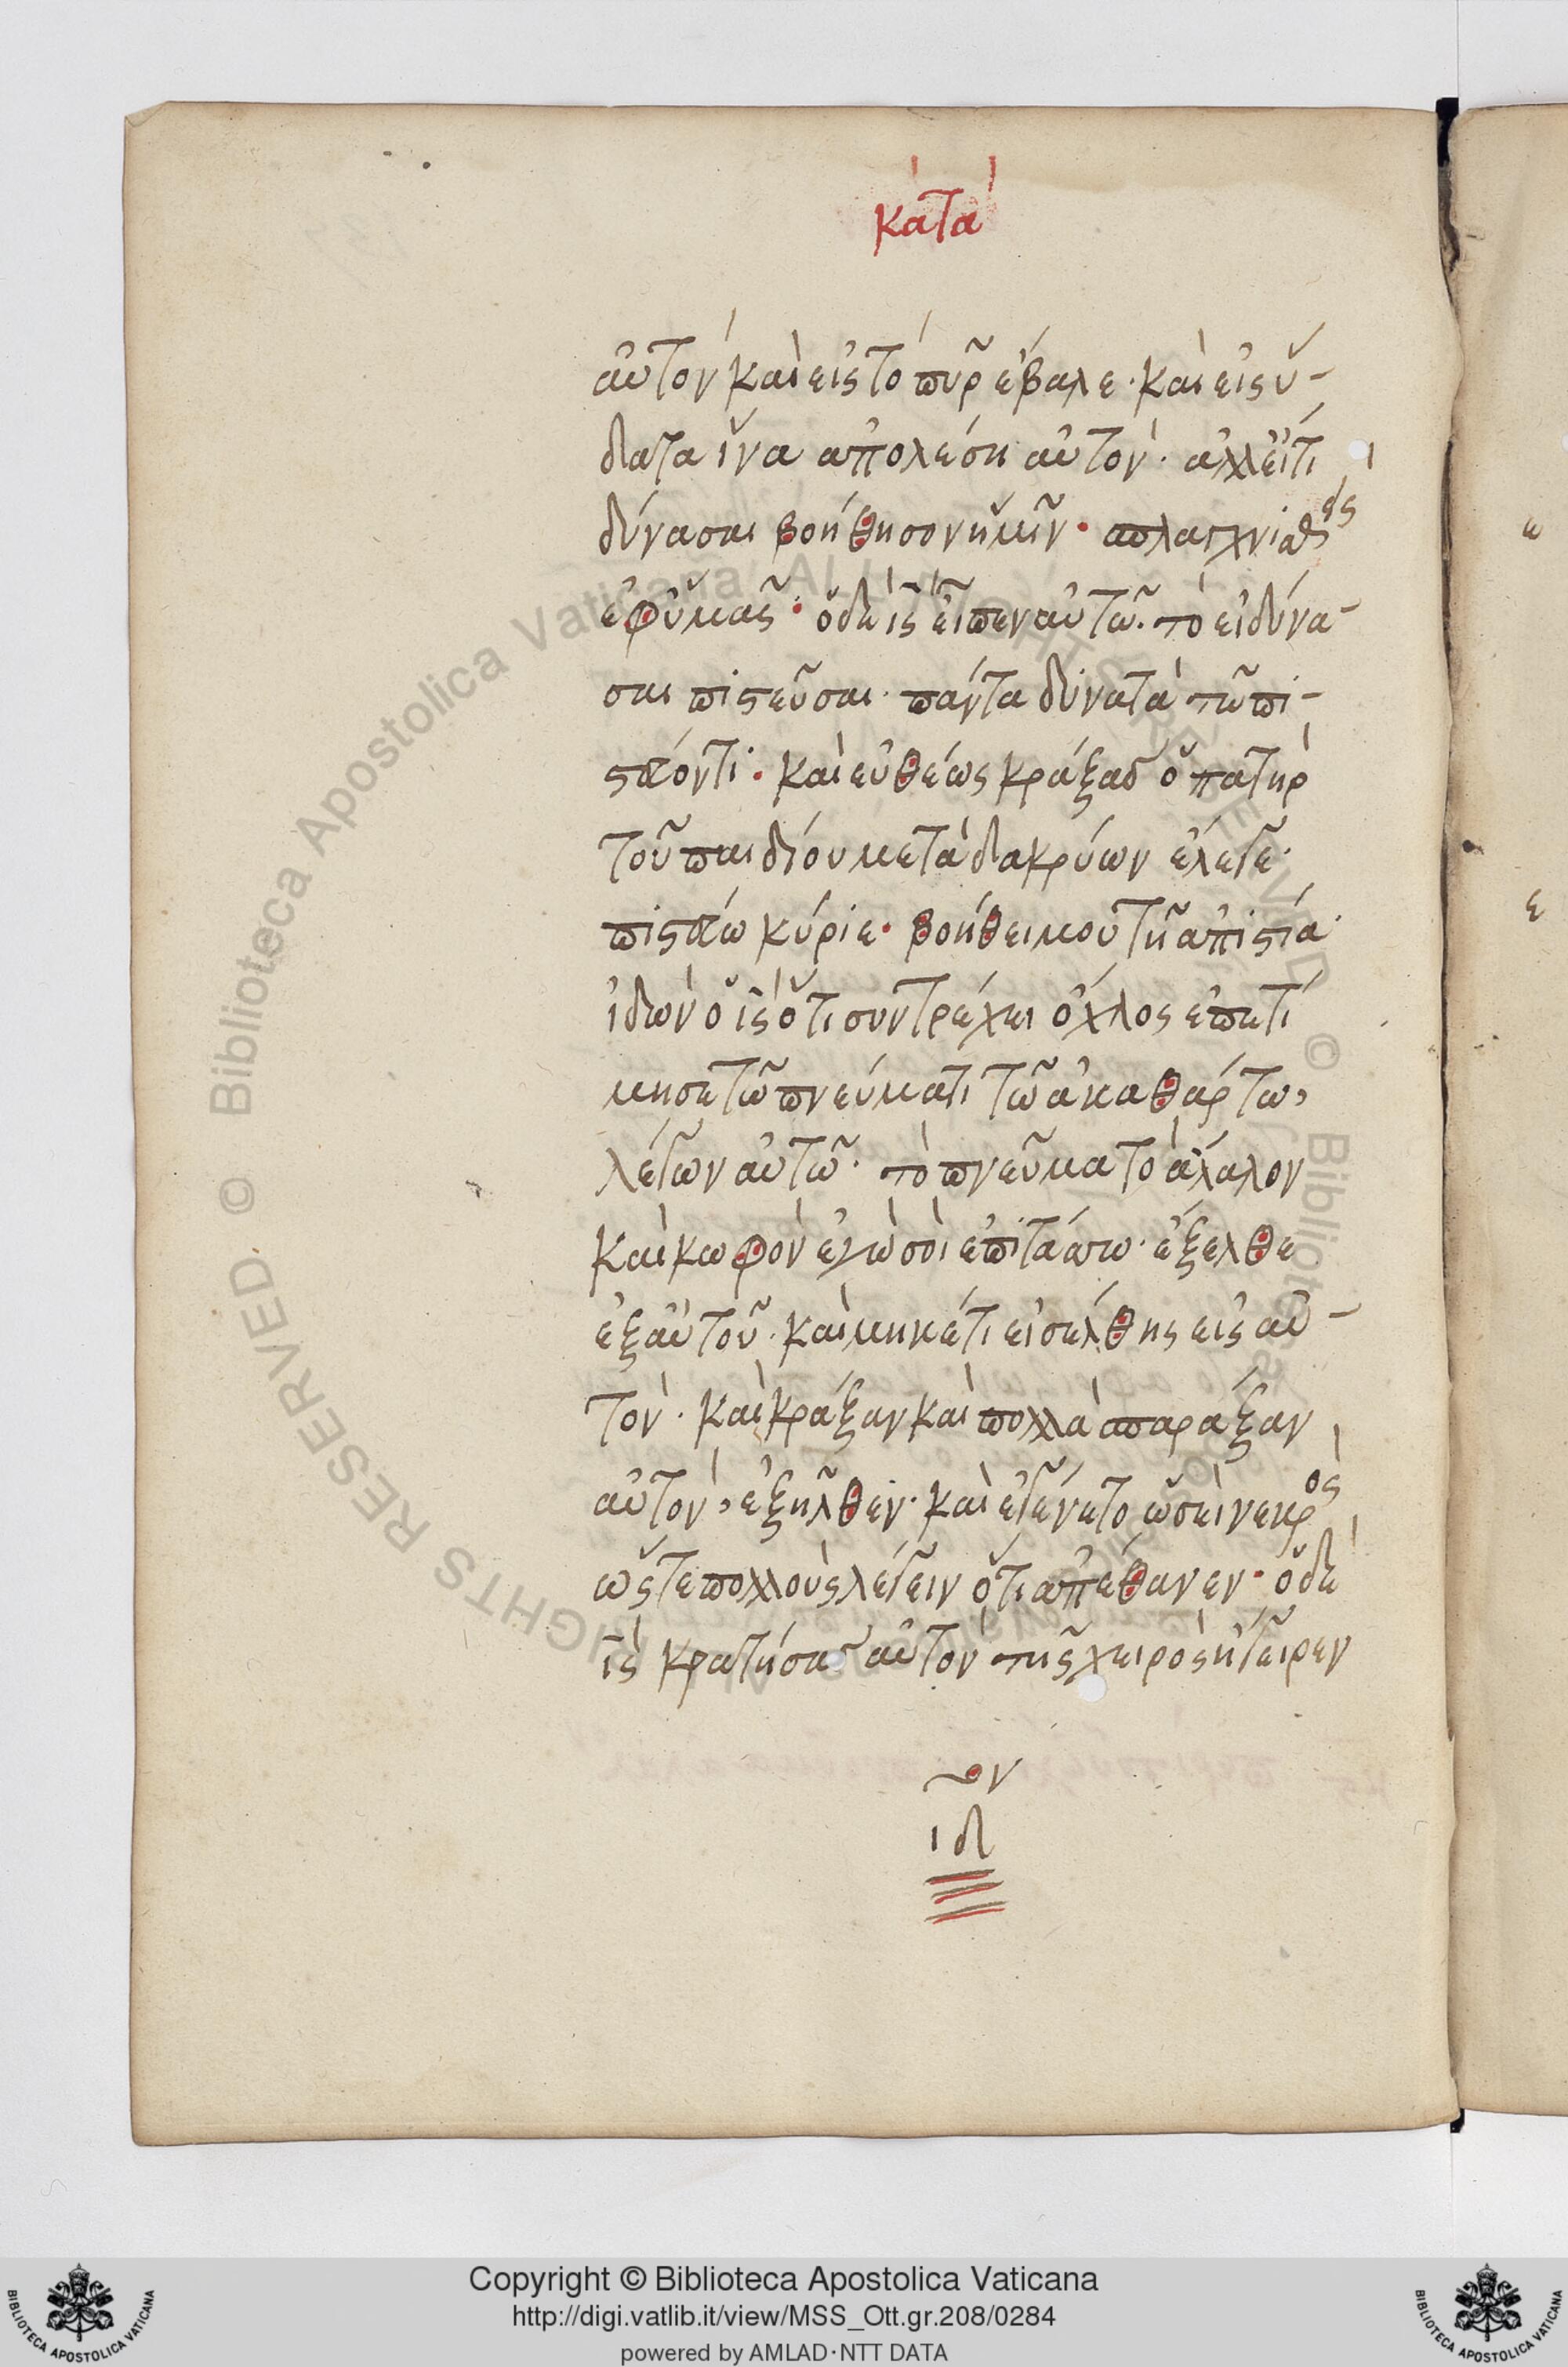 κατὰ
αὐτὸν καὶ εἰς τὸ πῦρ ἔβαλε· καὶ εἰς ὕ-
δατα ἵνα ἀπολέση αὐτόν· ἀλλ' εἴ τι
δύνασαι βοήθησον ἡμῖν· σπλαγχνισθεὶς
ἐφ' ὑμᾶς· ὁ δὲ ις εἶπεν αὐτῶ· τὸ εἰ δύνα-
σαι πιστεῦσαι· πάντα δυνατὰ τῶ πι-
στεύοντι· καὶ εὐθέως κράξας ὁ πατὴρ
τοῦ παιδίου μετὰ δακρύων ἔλεγε·
πιστεύω κύριε· βοήθει μου τῆ ἀπιστία·
ἰδὼν ὁ ις ὅτι συντρέχει ὄχλος ἐπετί
μησε τῶ πνεύματι τῶ ἀκαθάρτω,
λέγων αὐτῶ· τὸ πνεῦμα τὸ ἄλαλον
καὶ κωφὸν ἐγὼ σοὶ ἐπιτάττω· ἔξελθε
ἐξ αὐτοῦ· καὶ μηκέτι εἰσέλθης εἰς αὐ-
τόν· καὶ κράξαν καὶ πολλὰ σπαράξαν
αὐτὸν, ἐξῆλθεν· καὶ ἐγένετο ὡσεὶ νεκρὸς
ὥστε πολλοὺς λέγειν ὅτι ἀπέθανεν· ὁ δὲ
ις κρατήσας αὐτὸν τῆς χειρὸς ἤγειρεν
ιδ
Copyright © Biblioteca Apostolica Vaticana
http://digi.vatlib.it/view/MSS_Ott.gr.208/0284
powered by AMLAD·NTT DATA
BIBLIOTECA APOSTOLICA VATICANA
BIBLIOTECA APOSTOLICA VATICANA